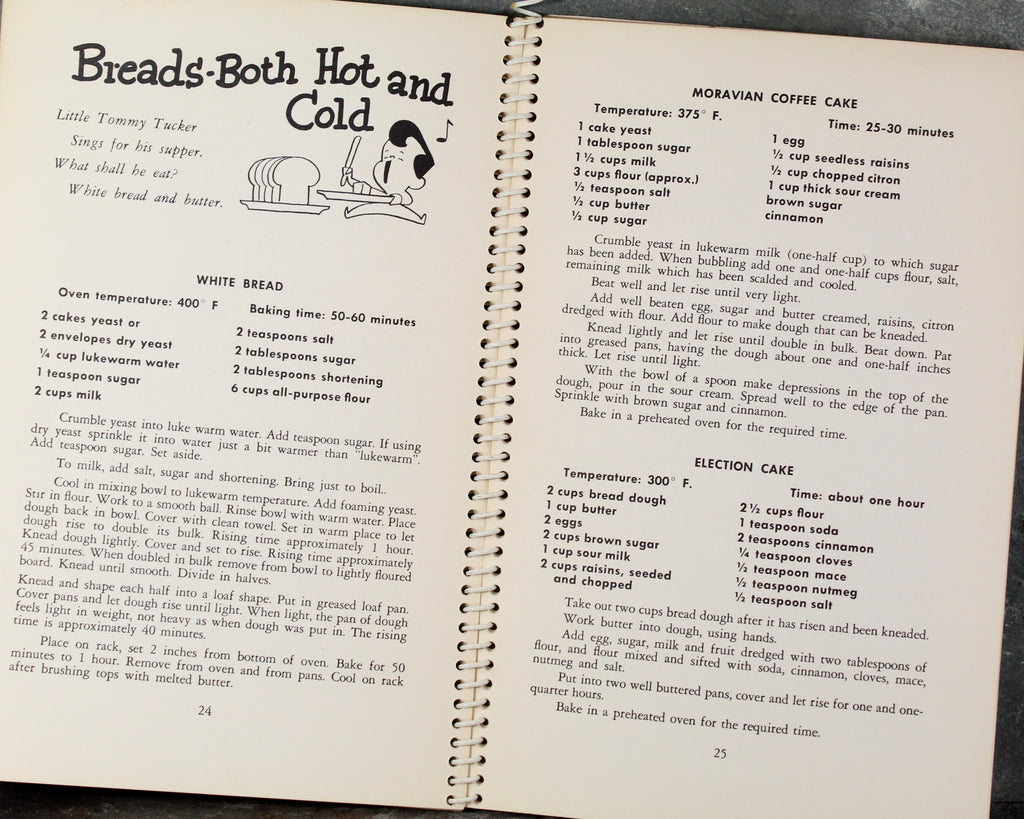 Breads-Both Hot and
Cold
Little Tommy Tucker
Sings for his supper.
What shall he eat?
White bread and butter.
WHITE BREAD
Oven temperature: 400° F
Baking time: 50-60 minutes
2 cakes yeast or
2 envelopes dry yeast
¼ cup lukewarm water
1 teaspoon sugar
2 cups milk
2 teaspoons salt
2 tablespoons sugar
2 tablespoons shortening
6 cups all-purpose flour
Crumble yeast into luke warm water. Add teaspoon sugar. If using
dry yeast sprinkle it into water just a bit warmer than "lukewarm".
Add teaspoon sugar. Set aside.
To milk, add salt, sugar and shortening. Bring just to boil..
Cool in mixing bowl to lukewarm temperature. Add foaming yeast.
Stir in flour. Work to a smooth ball. Rinse bowl with warm water. Place
dough back in bowl. Cover with clean towel. Set in warm place to let
dough rise to double its bulk. Rising time approximately 1 hour.
Knead dough lightly. Cover and set to rise. Rising time approximately
45 minutes. When doubled in bulk remove from bowl to lightly floured
board. Knead until smooth. Divide in halves.
Knead and shape each half into a loaf shape. Put in greased loaf pan.
Cover pans and let dough rise until light. When light, the pan of dough
feels light in weight, not heavy as when dough was put in. The rising
time is approximately 40 minutes.
Place on rack, set 2 inches from bottom of oven. Bake for 50
minutes to 1 hour. Remove from oven and from pans. Cool on rack
after brushing tops with melted butter.
24
MORAVIAN COFFEE CAKE
Temperature: 375° F.
Time: 25-30 minutes
1 cake yeast
1 tablespoon sugar
1 ½ cups milk
3 cups flour (approx.)
½ teaspoon salt
½ cup butter
½ cup sugar
1 egg
½ cup seedless raisins
½ cup chopped citron
1 cup thick sour cream
brown sugar
cinnamon
Crumble yeast in lukewarm milk (one-half cup) to which sugar
has been added. When bubbling add one and one-half cups flour, salt,
remaining milk which has been scalded and cooled.
Beat well and let rise until very light.
Add well beaten egg, sugar and butter creamed, raisins, citron
dredged with flour. Add flour to make dough that can be kneaded.
Knead lightly and let rise until double in bulk. Beat down. Pat
into greased pans, having the dough about one and one-half inches
thick. Let rise until light.
With the bowl of a spoon make depressions in the top of the
dough, pour in the sour cream. Spread well to the edge of the pan.
Sprinkle with brown sugar and cinnamon.
Bake in a preheated oven for the required time.
ELECTION CAKE
Temperature: 300° F.
Time: about one hour
2 cups bread dough
1 cup butter
2 eggs
2 cups brown sugar
1 cup sour milk
2 cups raisins, seeded
and chopped
2 ½ cups flour
1 teaspoon soda
2 teaspoons cinnamon
¼ teaspoon cloves
½ teaspoon mace
½ teaspoon nutmeg
½ teaspoon salt
Take out two cups bread dough after it has risen and been kneaded.
Work butter into dough, using hands.
Add egg, sugar, milk and fruit dredged with two tablespoons of
flour, and flour mixed and sifted with soda, cinnamon, cloves, mace,
nutmeg and salt.
Put into two well buttered pans, cover and let rise for one and one-
quarter hours.
Bake in a preheated oven for the required time.
25